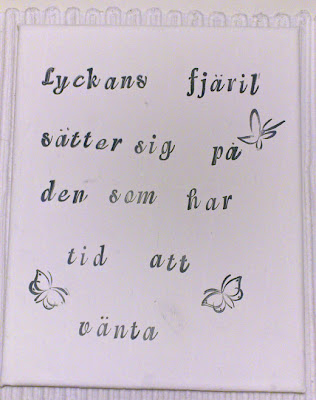 Lyckans fjäril
sätter sig på
den som har
tid att
vänta